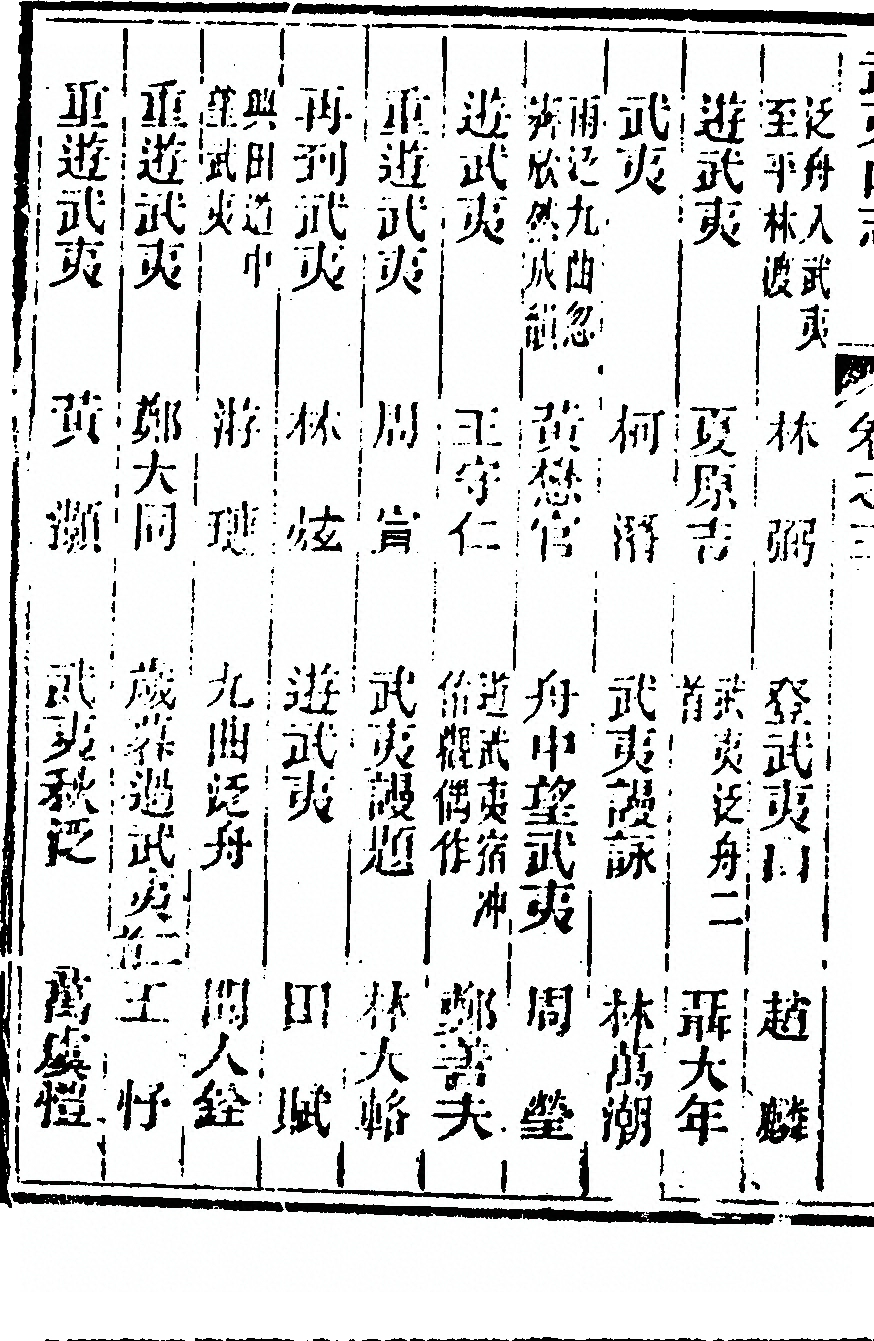 泛舟入武夷至平林渡 林弼 登武夷山 趙麟
遊武夷 夏原吉 武夷泛舟二首 聶大年
武夷 柯潛 武夷謾詠 林萬潮
雨泛九曲忽霽欣然成韻 黃懋官 舟中望武夷 周瑩
遊武夷 王守仁 遊武夷宿冲佑觀偶作 鄭善夫
重遊武夷 周宣 武夷謾題 林大輅
再到武夷 林炫 遊武夷 田賦
興田道中望武夷 游璉 九曲泛舟 聞人銓
重遊武夷 鄭大同 歲暮過武夷二首 王忬
重遊武夷 黃灝 武夷秋泛 萬虞愷